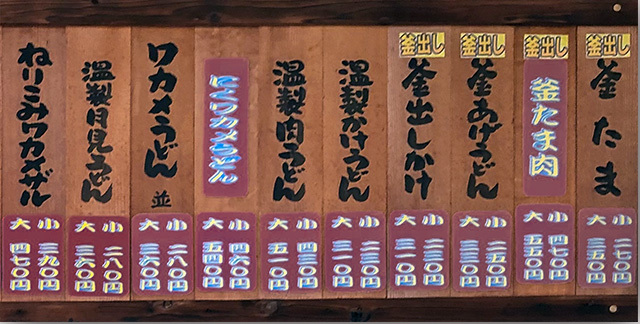 釜出し
釜たま
小 二七〇円
大 三五〇円
釜出し
釜たま肉
小 四七〇円
大 五五〇円
釜出し
釜あげうどん
小 二五〇円
大 三三〇円
釜出し
釜出しかけ
小 二三〇円
大 三一〇円
温製かけうどん
小 二三〇円
大 三一〇円
温製肉うどん
小 四三〇円
大 五一〇円
にくワカメうどん
小 四六〇円
大 五四〇円
ワカメうどん 並
小 二八〇円
大 三六〇円
温製月見うどん
小 二八〇円
大 三六〇円
ねりこみワカメザル
小 三九〇円
大 四七〇円